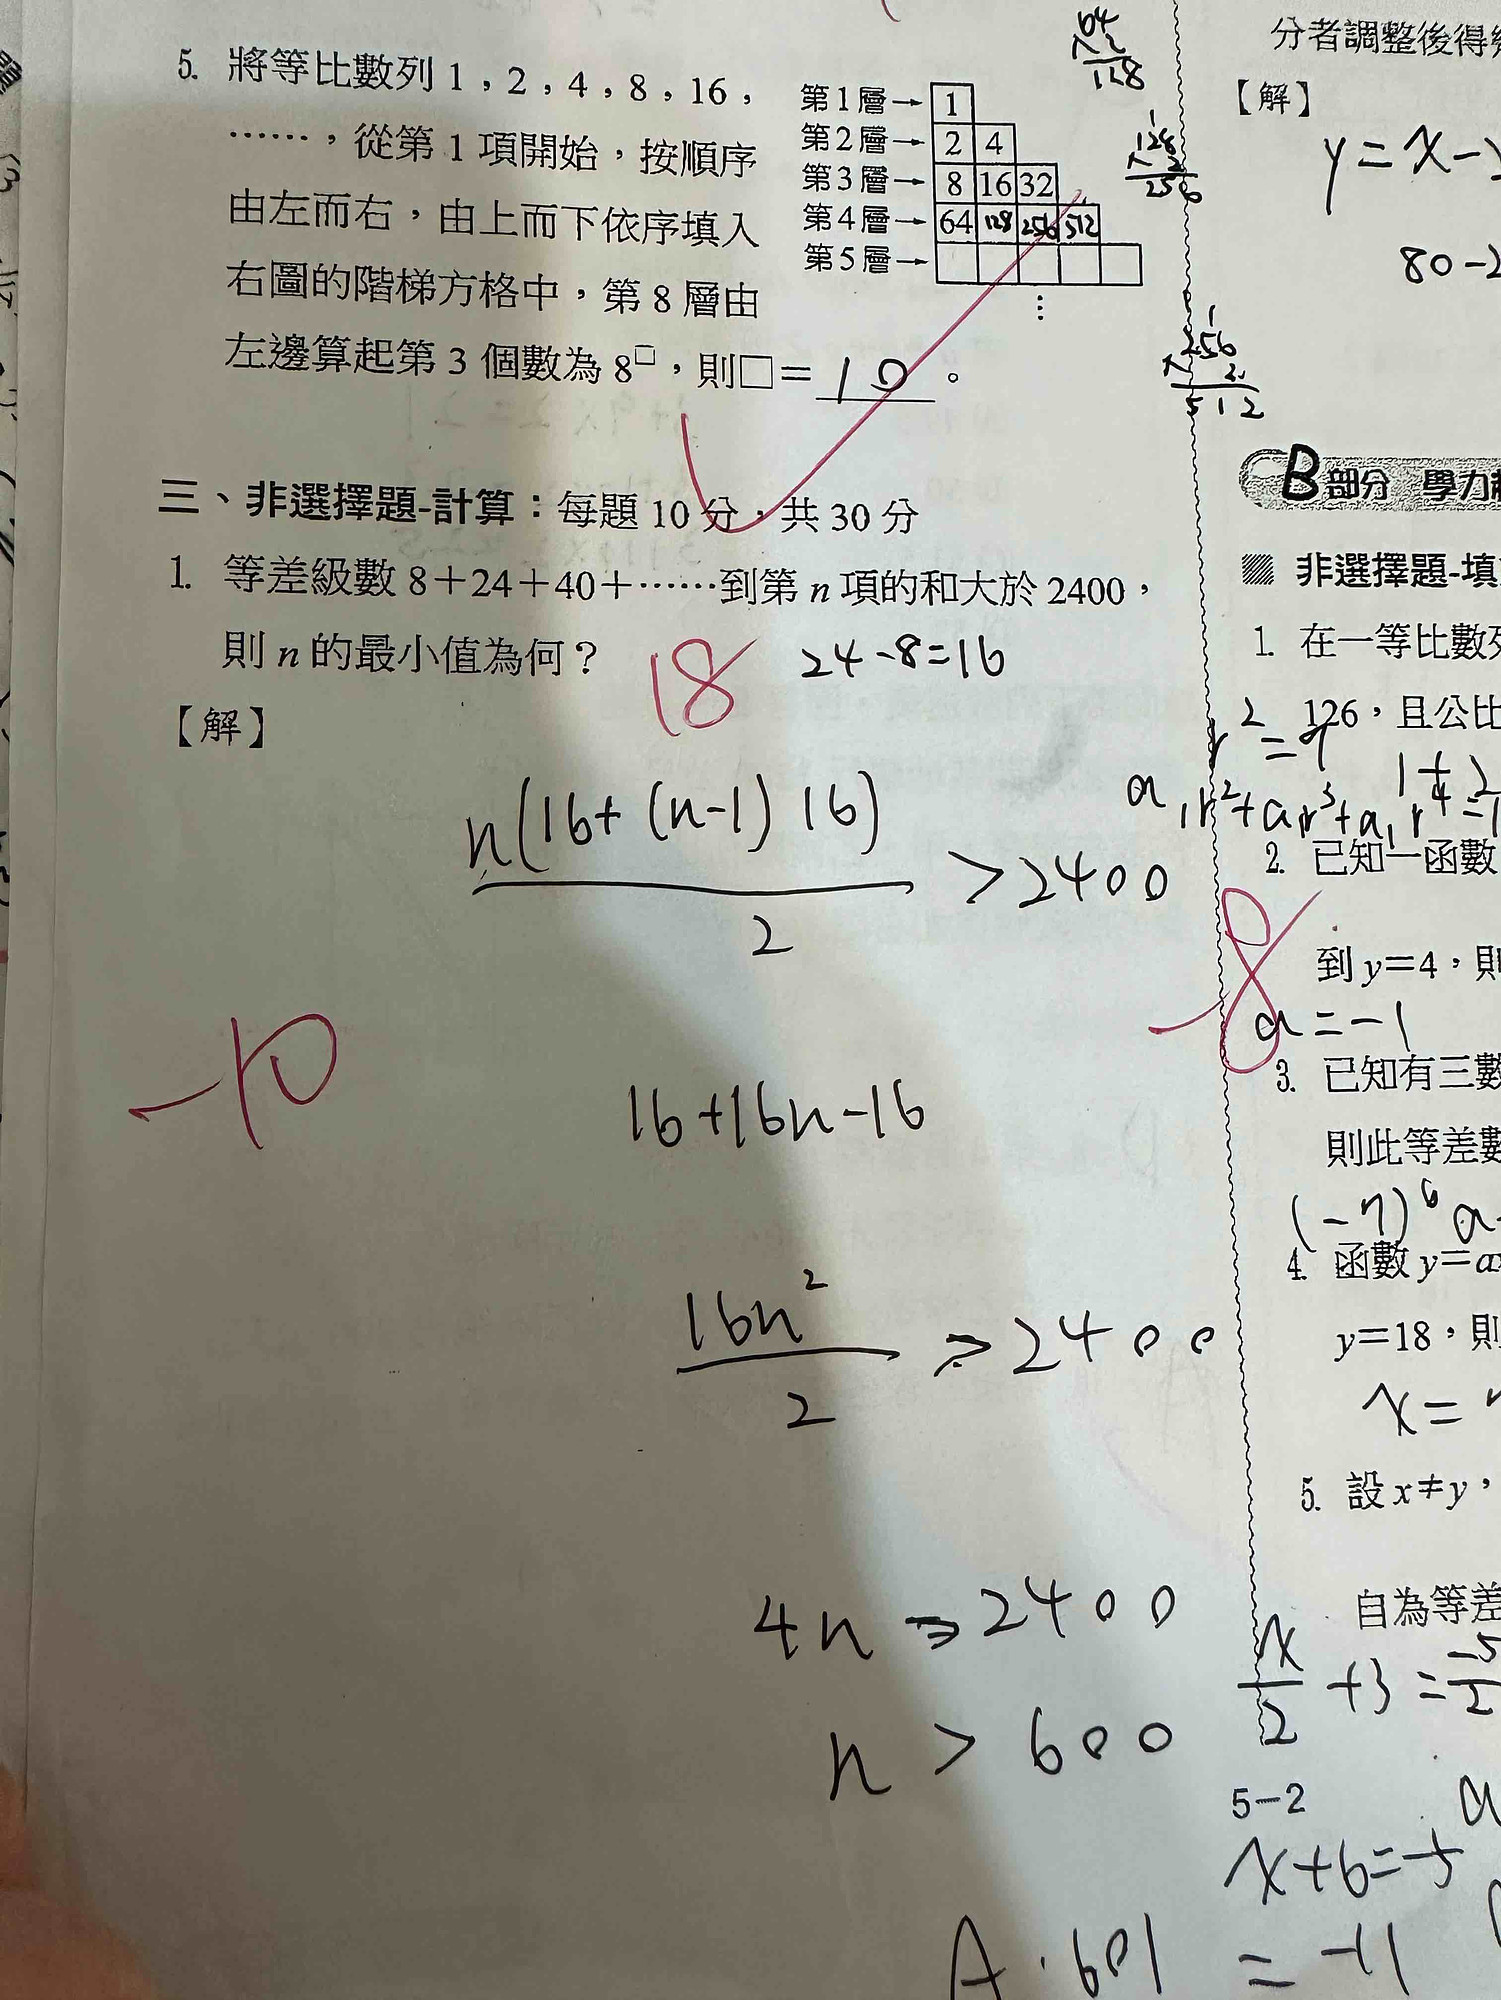 5. 將等比數列 1，2，4，8，16，
……，從第 1 項開始，按順序
由左而右，由上而下依序填入
右圖的階梯方格中，第 8 層由
左邊算起第 3 個數為 8□，則□＝10。
第1層→ 1
第2層→ 2 4
第3層→ 8 16 32
第4層→ 64 128 256 512
第5層→
⋮
64
×2
128
1
128
×2
256
1
256
×2
512
三、非選擇題-計算：每題 10 分，共 30 分
1. 等差級數 8＋24＋40＋……到第 n 項的和大於 2400，
則 n 的最小值為何？ 18 24-8=16
【解】
n(16+(n-1)16)
2
>2400
-10
16+16n-16
16n²
2
>2400
4n>2400
n>600
A.601
分者調整後得
【解】
y=x-
80-2
B部分 學力
非選擇題-填
1. 在一等比數列
126，且公比
r²=9
a₁r²+a₁r³+a₁r⁴=1
2. 已知一函數
到 y＝4，則
-8
a=-1
3. 已知有三數
則此等差數
(-7)⁶a
4. 函數 y＝a
y＝18，則
x=
5. 設 x≠y，
自為等差
x/2+3=-5/2
5−2
x+6=-5
=-11